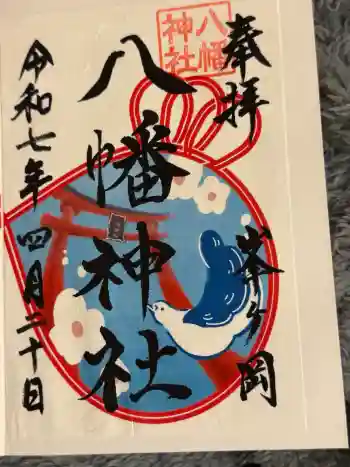 奉拝
峯ヶ岡
八幡
神社
八幡神社
令和七年四月二十日